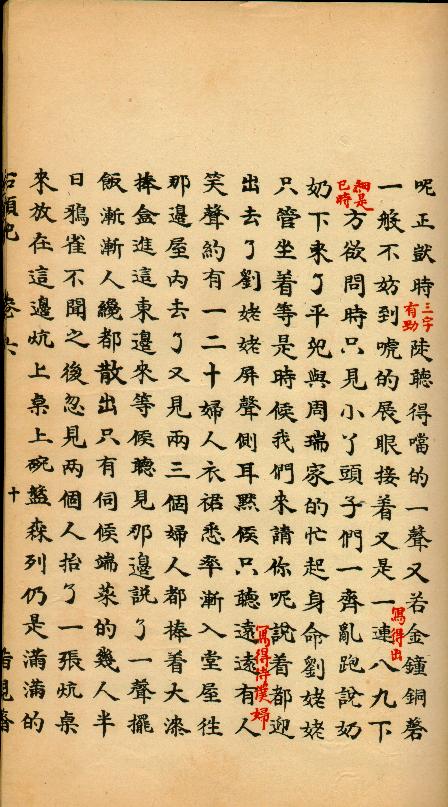 呢正獃時三字有勁陡聽得噹的一聲又若金鐘銅磬
一般不妨到唬的展眼接着又是一連八九下寫得出
細是已時方欲問時只見小丫頭子們一齊亂跑說奶
奶下來了平兒與周瑞家的忙起身命劉姥姥
只管坐着等是時候我們來請你呢說着都迎
出去了劉姥姥屏聲側耳默候只聽遠遠有人
寫得侍僕婦
笑聲約有一二十婦人衣裙悉率漸入堂屋往
那邊屋内去了又見兩三個婦人都捧着大漆
捧盒進這東邊來等候聽見那邊說了一聲擺
飯漸漸人纔都散出只有伺候端菜的幾人半
日鴉雀不聞之後忽見两個人抬了一張炕桌
來放在這邊炕上桌上碗籃森列仍是滿滿的
卷六
十